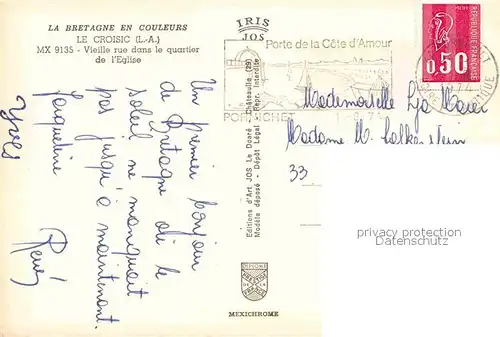 LA BRETAGNE EN COULEURS
LE CROISIC (L.-A.)
MX 9135 - Vieille rue dans le quartier
de l'Eglise
IRIS
JOS
Porte de la Côte d'Amour
PORNICHET
0,50
REPUBLIQUE FRANÇAISE
Mademoiselle
Madame W. Falkenstein
33
Un premier bonjour
de Bretagne où le
soleil ne manquait
pas jusqu'à maintenant.
Jacqueline
Yves
René
Editions d'Art JOS Le Doaré - Châteaulin (29)
Modèle déposé - Dépôt Légal - Repr. Interdite
MEXICHROME
privacy protection
Datenschutz